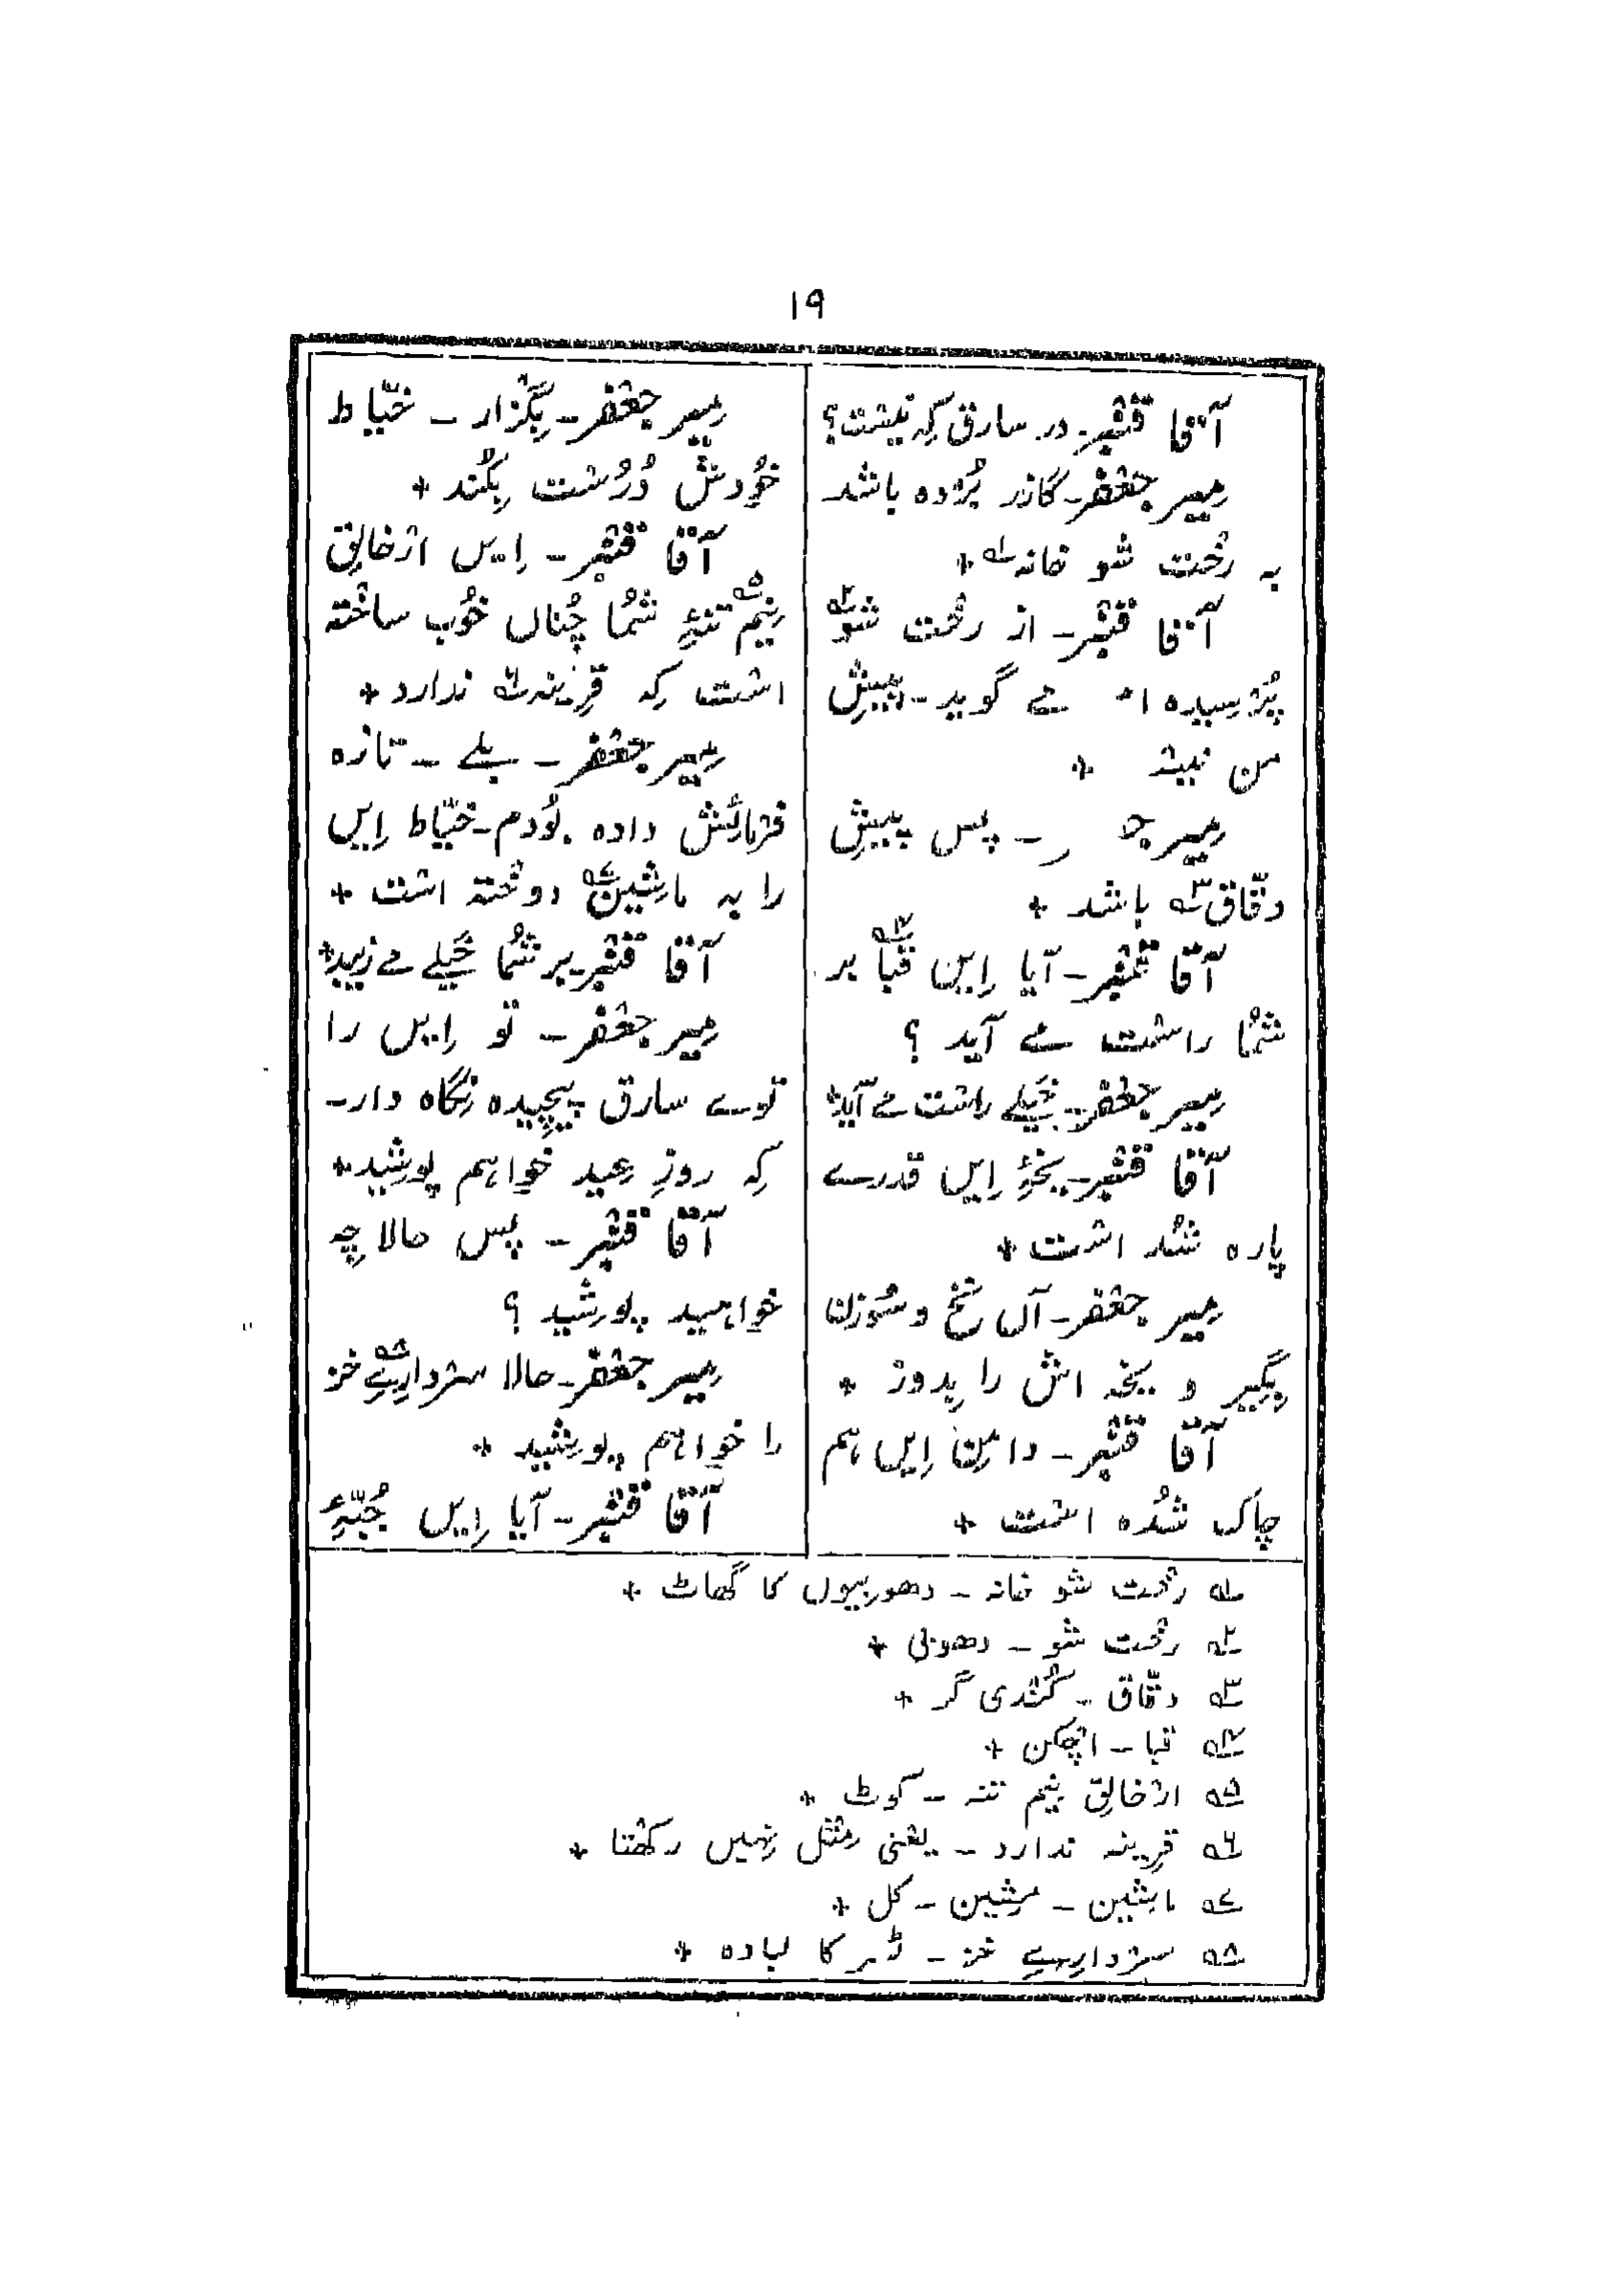 ۱۹
آقا قنبر۔ در سارق کہ نیست؟
میر جعفر۔ گاذر بُرده باشد
بہ رَخت شو خانہ ۱؎ +
آقا قنبر۔ از رخت شو ۲؎
پُرسیده ام مے گوید۔ پیشِ
من نیست +
میر ج ر۔ پس پیشِ
دقّاق ۳؎ باشد +
آقا قنبر۔ آیا اِین قبا ۴؎ بر
شُما راست مے آید ؟
میر جعفر۔ خَیلے راست مے آید+
آقا قنبر۔ یخۂِ اِیں قدرے
پاره شُده است +
میر جعفر۔ آں نخ و سُوزن
بگیر و یخہ اش را بِدوز +
آقا قنبر۔ دامنِ اِیں ہم
چاک شُده است +
میر جعفر۔ بگُزار۔ خیّاط
خُودش دُرُست بِکُند +
آقا قنبر۔ اِیں ارخالِق
نِیم ۵؎ تنۂِ شُما چُناں خُوب ساختہ
است کِہ قرِینہ ۶؎ ندارد +
میر جعفر۔ بلے۔ تازه
فرمائش داده بُودم۔ خیّاط اِیں
را بہ ماشین ۷؎ دوختہ است +
آقا قنبر۔ بر شُما خَیلے مے زیبد+
میر جعفر۔ تو اِیں را
توے سارق پیچِیده نِگاه دار۔
کِہ روزِ عِید خواہم پوشید+
آقا قنبر۔ پس حالا چِہ
خواہید پوشید ؟
میر جعفر۔ حالا سردارِیے ۸؎ خز
را خواہم پوشید +
آقا قنبر۔ آیا اِیں جُبّۂِ
۱؎ رخت شو خانہ۔ دھوبیوں کا گھاٹ +
۲؎ رخت شو۔ دھوبی +
۳؎ دقّاق۔ کُندی گر +
۴؎ قبا۔ اچکن +
۵؎ ارخالِق نِیم تنہ۔ کوٹ +
۶؎ قرِینہ ندارد۔ یعنی مِثل نہِیں رکھتا +
۷؎ ماشین۔ مشین۔ کل +
۸؎ سردارِیے خز۔ کا لباده +